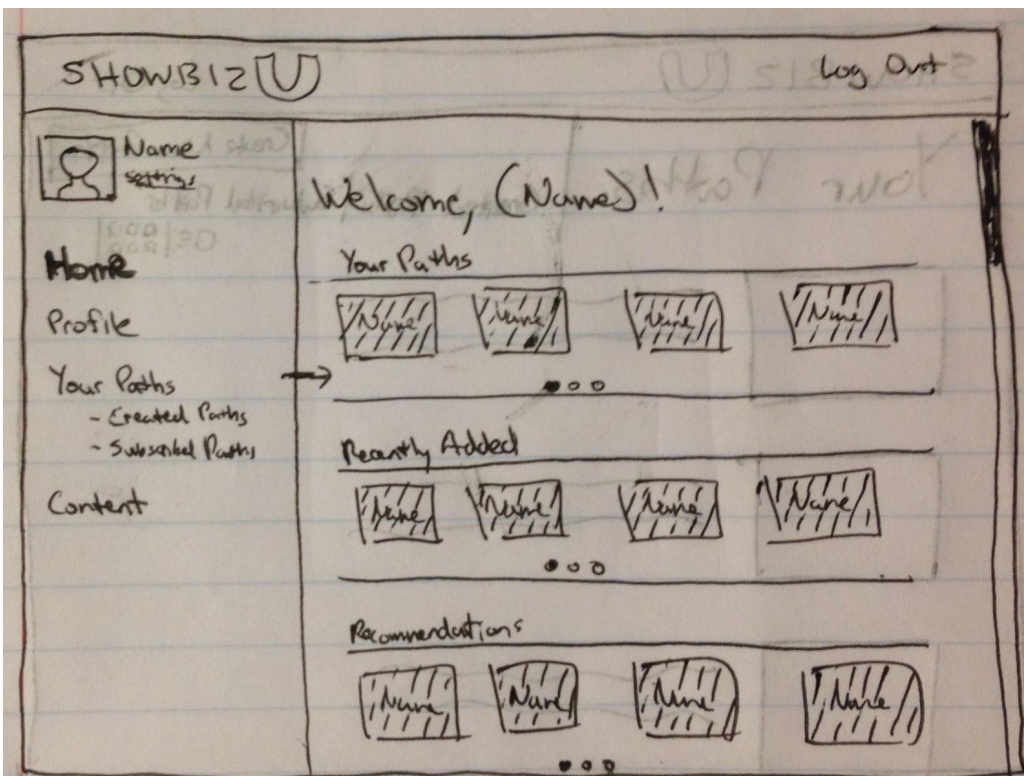 SHOWBIZ U
Log Out
Name
settings
Home
Profile
Your Paths
- Created Paths
- Subscribed Paths
Content
Welcome, (Name)!
Your Paths
Name Name Name Name
Recently Added
Name Name Name Name
Recommendations
Name Name Name Name